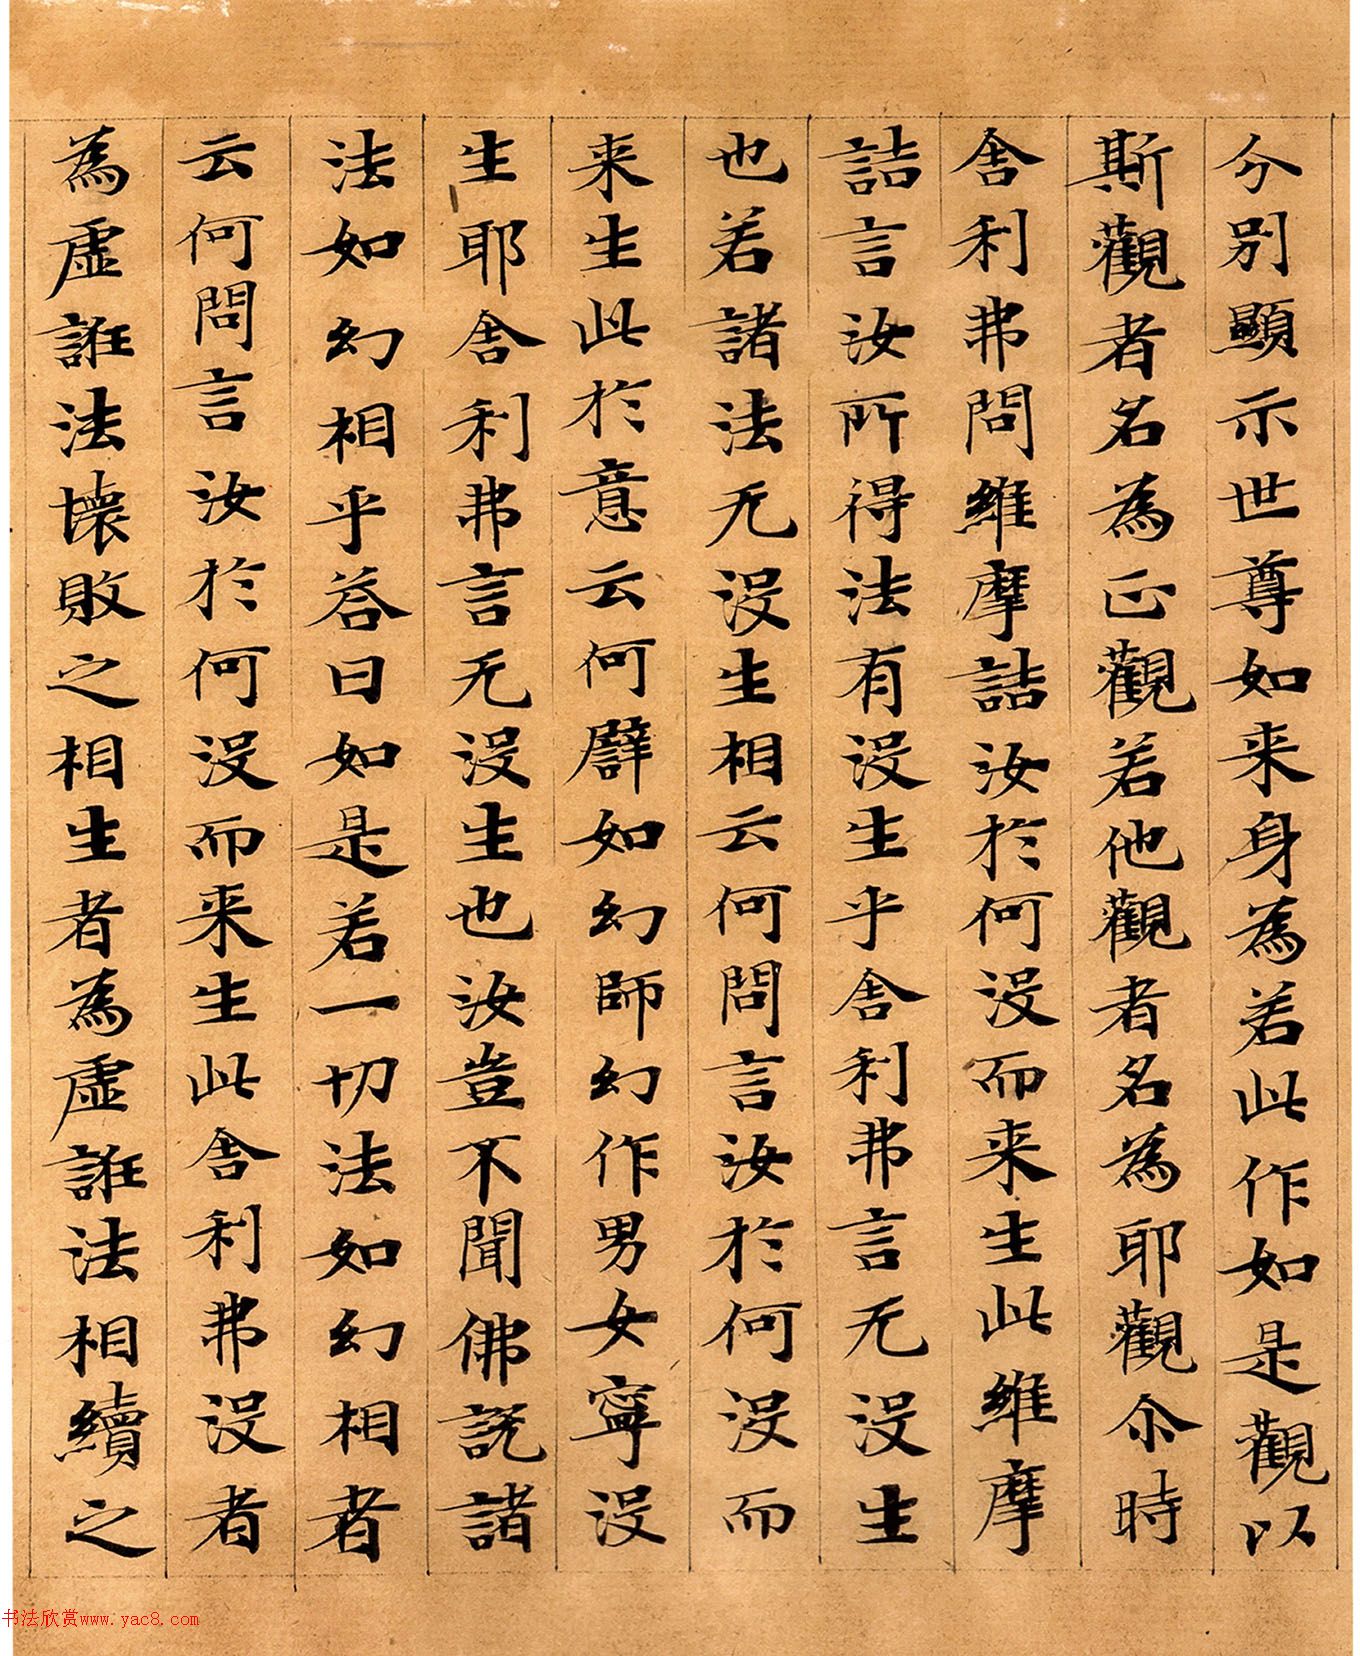 分別顯示世尊如来身為若此作如是觀以
斯觀者名為正觀若他觀者名為耶觀尒時
舍利弗問維摩詰汝於何没而来生此維摩
詰言汝所得法有没生乎舍利弗言无没生
也若諸法无没生相云何問言汝於何没而
来生此於意云何譬如幻師幻作男女寧没
生耶舍利弗言无没生也汝豈不聞佛説諸
法如幻相乎荅曰如是若一切法如幻相者
云何問言汝於何没而来生此舍利弗没者
為虛誑法壞敗之相生者為虛誑法相續之
书法欣赏www.yac8.com